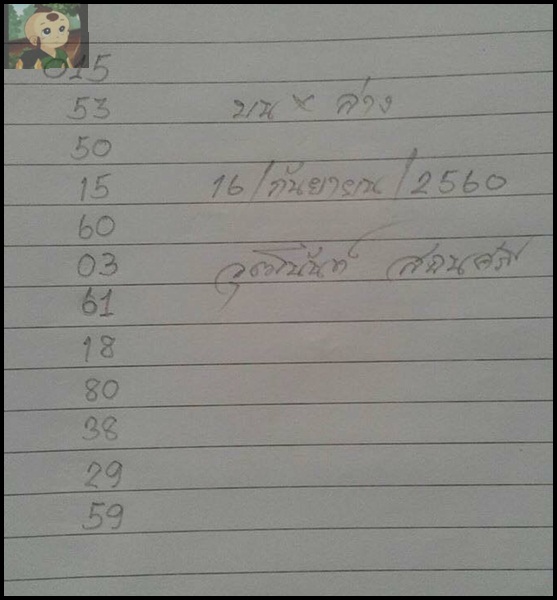 015
53 บน × ล่าง
50
15 16/กันยายน/2560
60
03
61
18
80
38
29
59